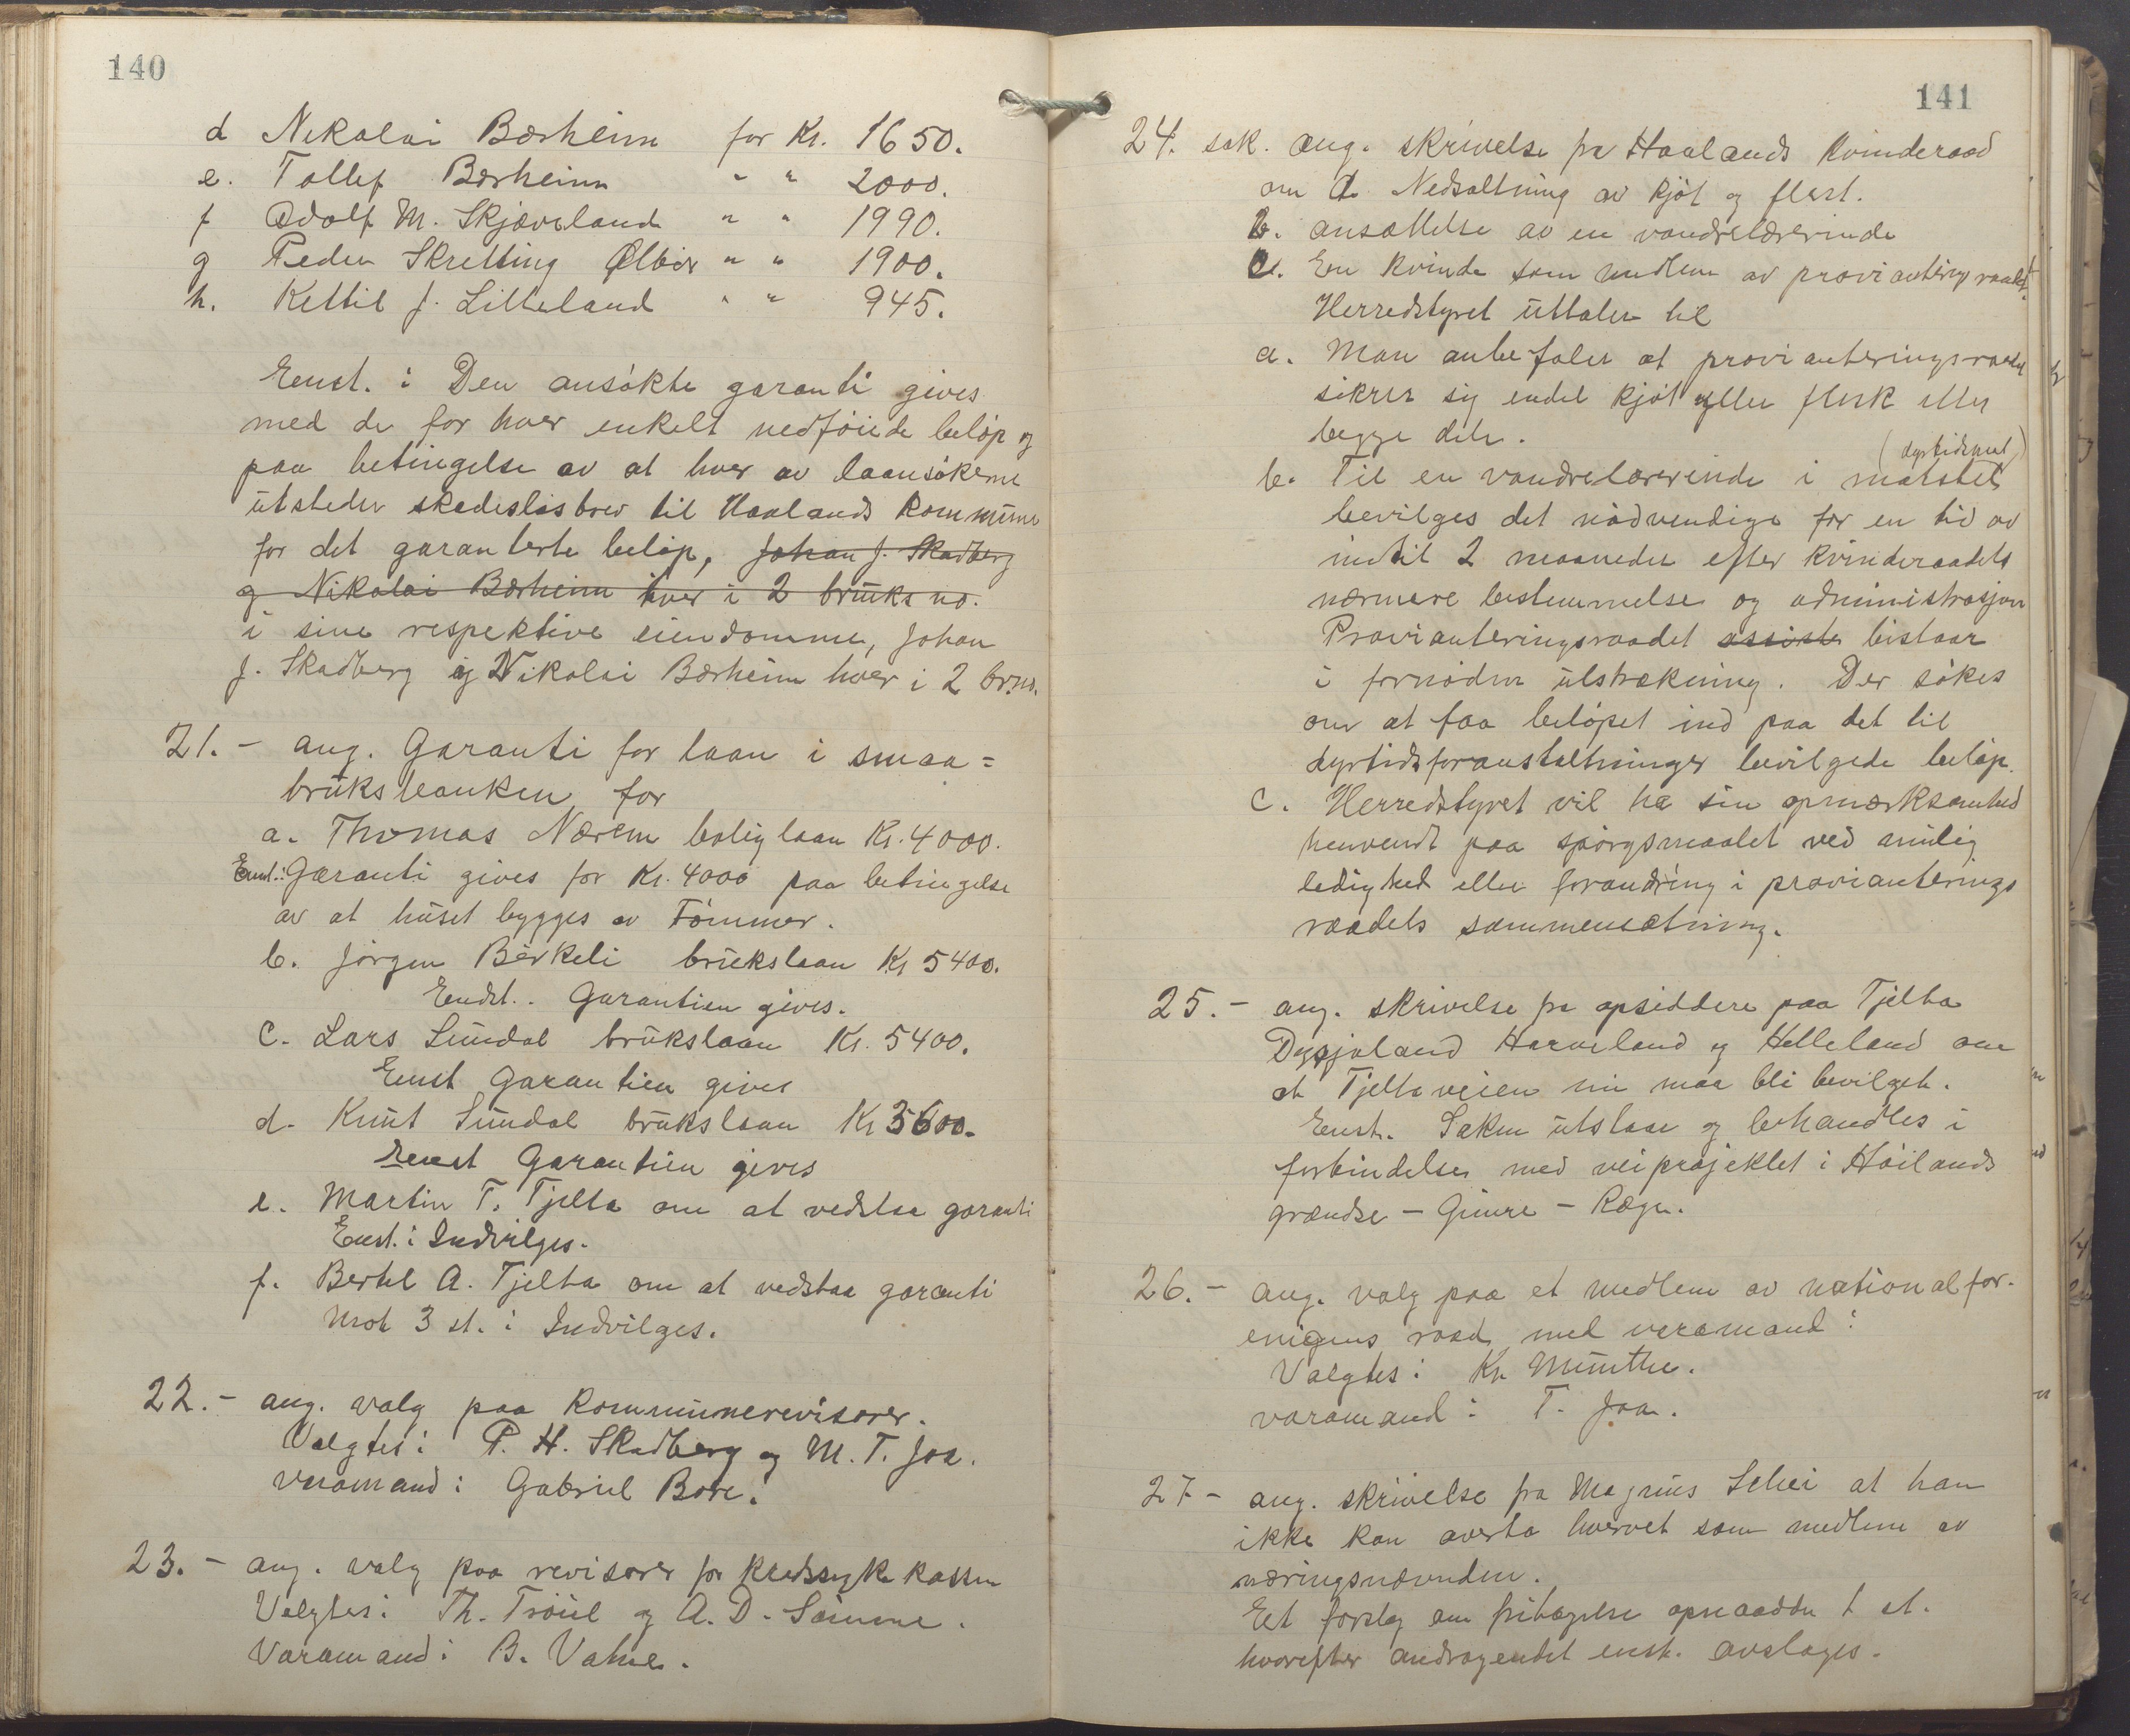 140
d Nikolai Bærheim for Kr. 1650.
e. Tollef Bærheim " " 2000.
f Adolf M. Skjæveland " " 1990.
g Peder Skretting Ølbør " " 1900.
h. Kettil J. Litleland " " 945.
Enst. : Den ansøkte garanti gives
med de for hver enkelt nedføiede beløp og
paa betingelse av at hver av laansøkerne
utsteder skadesløsbrev til Haalands kommune
for det garanterte beløp, Johan J. Skadberg
og Nikolai Bærheim hver i 2 bruks no.
i sine respektive eiendomme, Johan
J. Skadberg og Nikolai Bærheim hver i 2 brno.
21. - ang. Garanti for laan i smaa=
bruksbanken for
a. Thomas Nærem boliglaan Kr. 4000.
Enst.: Garanti gives for Kr. 4000 paa betingelse
av at huset bygges av Tømmer.
b. Jørgen Birkeli brukslaan Kr 5400.
Endst.. Garantien gives.
c. Lars Sundal brukslaan Kr. 5400.
Enst Garantien gives
d. Knut Sundal brukslaan Kr 3600.
Enst Garantien gives
e. Martin T. Tjelta om at vedstaa garanti
Enst. : Indvilges.
f. Bertel A. Tjelta om at vedstaa garanti
Mot 3 st. : Indvilges.
22. - ang. valg paa kommunerevisorer.
Valgtes: P. H. Skadberg og M. T. Joa.
varamand : Gabriel Bore.
23. - ang. valg paa revisorer for kredssykekassen
Valgtes: Th. Trøiel og A. D. Sømme.
Varamand : B. Vatne.
141
24. sak. ang. skrivelse fra Haalands Kvinderaad
om a. Nedsaltning av kjøt og flesk.
b. ansættelse av en vandrelærerinde
c. En kvinde som medlem av provianteringsraadet.
Herredstyret uttaler til
a. Man anbefaler at provianteringsraadet
sikrer sig endel kjøt eller flesk eller
begge dele.
(dyrtidsmat)
b. Til en vandrelærerinde i matstel
bevilges det nødvendige for en tid av
indtil 2 maaneder efter kvinderaadets
nærmere bestemmelse og administrasjon
Provianteringsraadet assiste bistaar
i fornøden utstrækning. Der søkes
om at faa beløpet ind paa det til
dyrtidsforanstaltninger bevilgede beløp.
c. Herredstyret vil ha sin opmærksomhed
henvendt paa spørgsmaalet ved mulig
ledighed eller forandring i provianterings
raadets sammensætning.
25. - ang. skrivelse fra opsiddere paa Tjelta
Dysjaland Harveland og Helleland om
at Tjeltaveien nu maa bli bevilget.
Enst. Saken utstaar og behandles i
forbindelse med veiprojektet i Høilands
grændse - Gimre -Ræge.
26. - ang. valg paa et medlem av nationalfor-
enigens raad med varamand :
Valgtes : Kr. Munthe.
varamand : T. Joa.
27 - ang. skrivelse fra Magnus Schei at han
ikke kan overta hvervet som medlem av
næringsnævnden.
Et forslag om fritagelse opnaadde 1 st.
hvorefter andragendet enst. avslages.